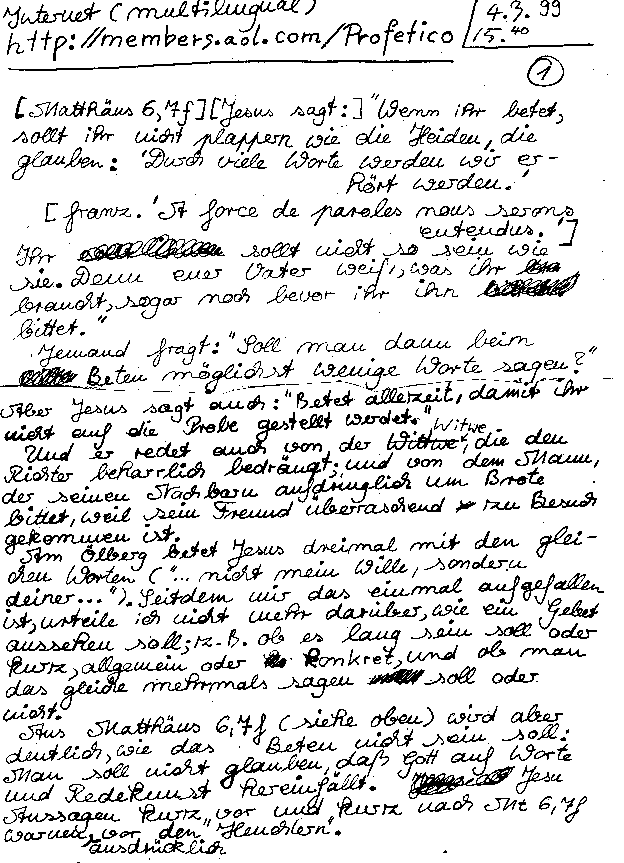 Internet (multilingual)
http://members.aol.com/Profetico
4.3.99
15.40
1
[Matthäus 6,7f][Jesus sagt:] "Wenn ihr betet,
sollt ihr nicht plappern wie die Heiden, die
glauben: 'Durch viele Worte werden wir er-
hört werden.'
[franz. 'A force de paroles nous serons
entendus.']
Ihr sollt nicht so sein wie
sie. Denn euer Vater weiß, was ihr
braucht, sogar noch bevor ihr ihn
bittet."
Jemand fragt: "Soll man dann beim
Beten möglichst wenige Worte sagen?"
Aber Jesus sagt auch: "Betet allezeit, damit ihr
nicht auf die Probe gestellt werdet."
Und er redet auch von der Witwe, die den
Richter beharrlich bedrängt; und von dem Mann,
der seinen Nachbarn aufdringlich um Brote
bittet, weil sein Freund überraschend zu Besuch
gekommen ist.
Am Ölberg betet Jesus dreimal mit den glei-
chen Worten ("... nicht mein Wille, sondern
deiner..."). Seitdem mir das einmal aufgefallen
ist, urteile ich nicht mehr darüber, wie ein Gebet
aussehen soll; z.B. ob es lang sein soll oder
kurz, allgemein oder konkret, und ob man
das gleiche mehrmals sagen soll oder
nicht.
Aus Matthäus 6,7f (siehe oben) wird aber
deutlich, wie das Beten nicht sein soll:
Man soll nicht glauben, daß Gott auf Worte
und Redekunst hereinfällt. Jesu
Aussagen kurz vor und kurz nach Mt 6,7f
warnen ausdrücklich vor den "Heuchlern".